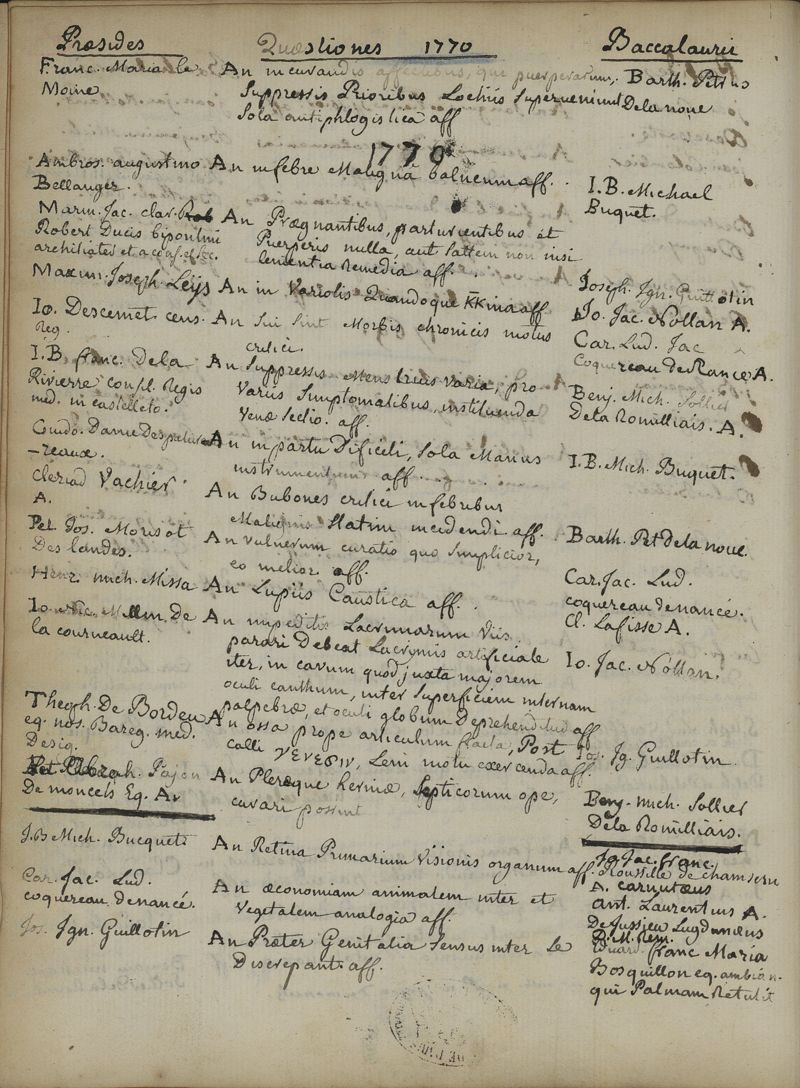 Præsides Quæstiones 1770 Baccalaurii
Franc. Maria le
Moine.
An in curandis affectibus, que puerperarum,
Suppressis Prioribus Lochiis Superveniunt
Sola antiphlogistica aff
Barth. Petrus
Dela noue
1770
Ambros. augustino
Bellanger.
An in febre Maligna balneum aff.
I. B. Michael
Buquet.
Marin. Jac. clar.
Robert Ducis bipontini
architiater et
An Prægnantibus, parturientibus et
Puerperis nulla, aut saltem non nisi
lenientia Remedia aff.
Maxim. Joseph. Leijs
An in Variolis Quandoque KKina aff
Joseph. Ign. Guillotin
Io. Descemet. cens.
Reg.
An Sui Sint Morbis chronicis motus
critici.
Io. Jac. Nollan A.
Car. Lud. Jac
Coquereau De Nance A.
I. B. franc. Dela
Rivierre consil. Regis
med. in castelleto.
An Suppressis Menstruis varia, pro
Variis Simptomatibus, instituenda
Venæ Sectio. aff.
Benj. Mich. Sollier
Dela Romilliais. A.
Guido. Danie Despatures
-reaux.
An in partu Dificili, Sola Manus
instrumentum aff.
I. B. Mich. Buquet.
Cleriad Vachier
A.
An Bubones critici in febribus
Malignis Statim incidendi aff.
Barth. Pet Dela noue
Pet. Jos. Morisot
Des landes.
An vulnerum curatio quo Simplicior,
eo melior aff.
Henr. mich. Missa
An Lupiis Caustica aff.
Car. Jac. Lud.
coquereau denancé.
Cl. Lafisse A.
Io. Nic. Millin. De
la courneault.
An impeditis Lacrimarum Viis
parari Debeat Lacrymis artificiale
iter, in cavum quod juxta majorem
oculi canthum, inter Superficiem internam
palpebræ, et oculi globum Deprehenditur aff
Io. Jac. Nollan.
Theoph. De Bordeu
eq. nos. Bareg. med.
Desig.
An ossa prope articulum fracta, Post
calli γενεσιν, Leni motu exercenda aff.
Jos. Ig. Guillotin
Pajon
De moncets Eq. Ar
An Pleræque herniæ, Septicorum ope,
curari possint
Benj. mich. Sollier
Dela Romilliais.
J. B. Mich. Bucquet
An Retina Primarium Visionis organum aff.
Io. Jac. franc.
Rousille de chamseru
A. carnutæus
Car. Jac. Lud.
coquereau denancé.
An œconomiam animalem inter et
Vegetalem analogia aff.
Ant. Laurentius A.
De Jussieu Lugdunæus
D. M. Rem.
Jos. Ign. Guillotin
An Præter Genitalia Sensus inter Se
Discrepant aff.
Eduard. franc Maria
Bosquillon eq. ambian.
qui Palmam Retulit